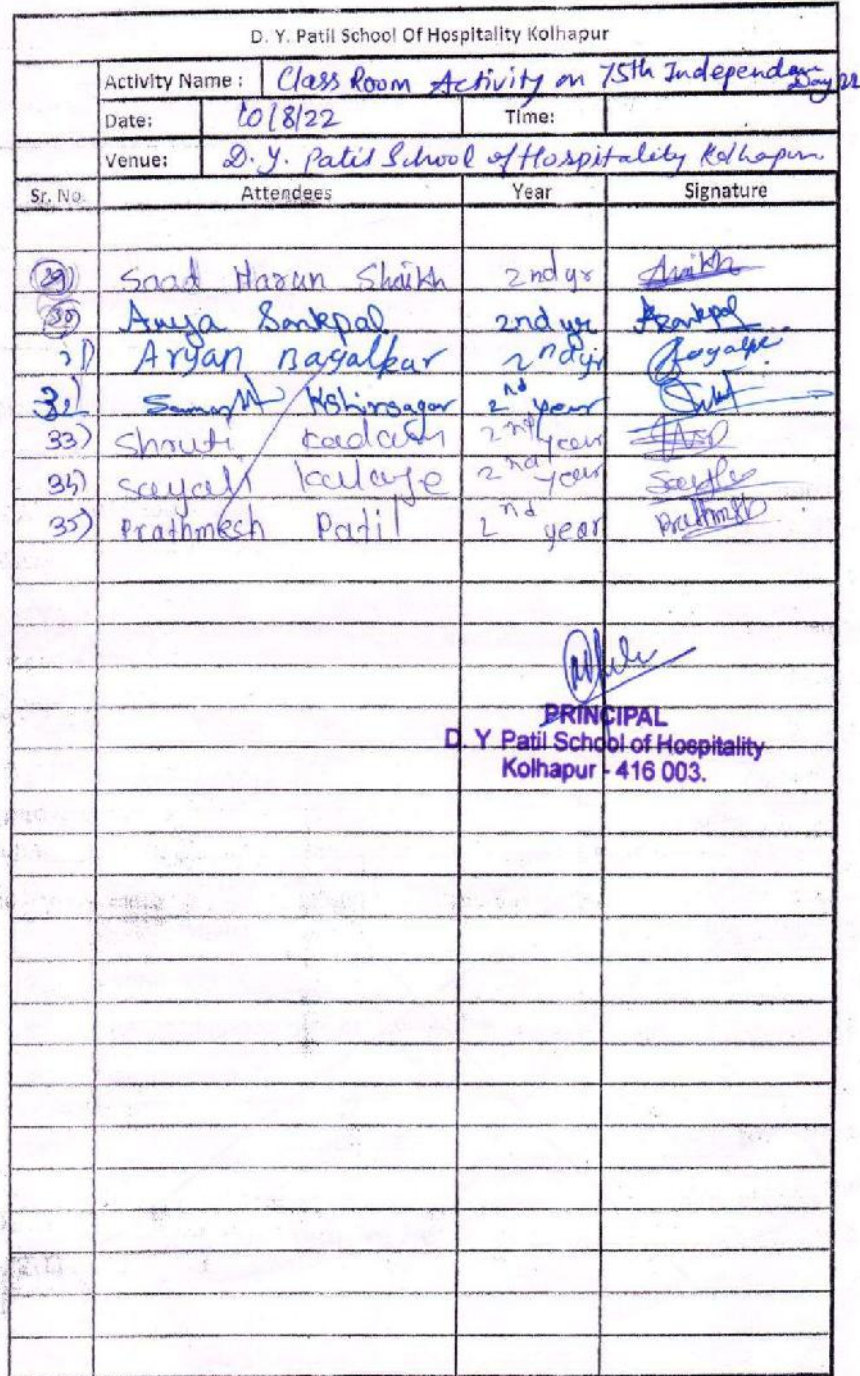 D. Y. Patil School Of Hospitality Kolhapur
Activity Name : Class Room Activity on 75th Independance Day 22
Date: 10/8/22 Time:
Venue: D. Y. Patil School of Hospitality Kolhapur
Sr. No. Attendees Year Signature
29) Saad Harun Shaikh 2nd yr
30) Anuja Sankpal 2nd yr Asankpal
31) Aryan Nagalkar 2nd yr
32) Kshirsagar 2nd year
33) Shruti kadam 2nd year
34) Sayali kalage 2nd year
35) Prathmesh Patil 2nd year Prathmesh
PRINCIPAL
D. Y Patil School of Hospitality
Kolhapur - 416 003.